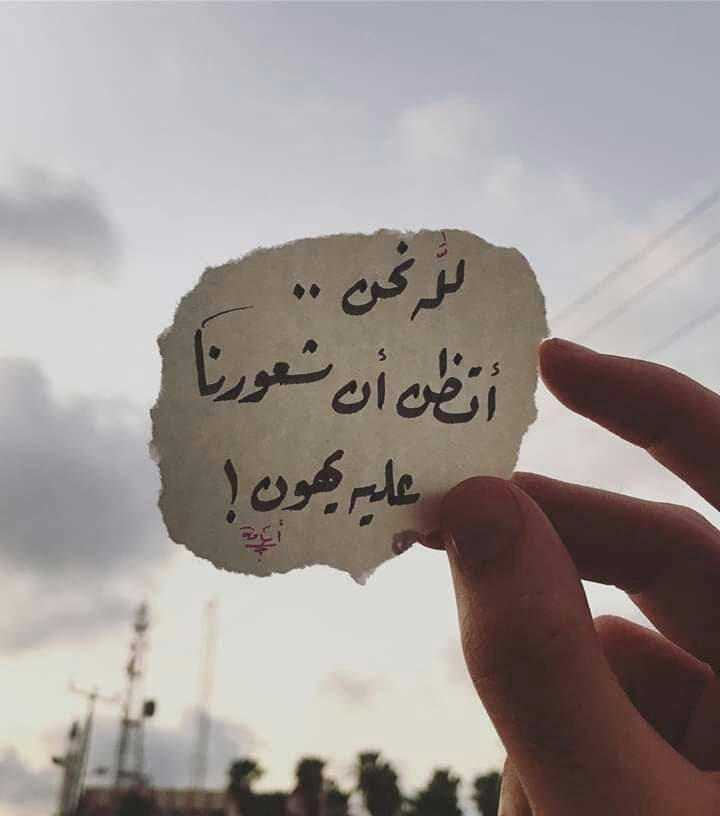 للّٰه نحن ..
أتظن أن شعورنا
عليه يهون !